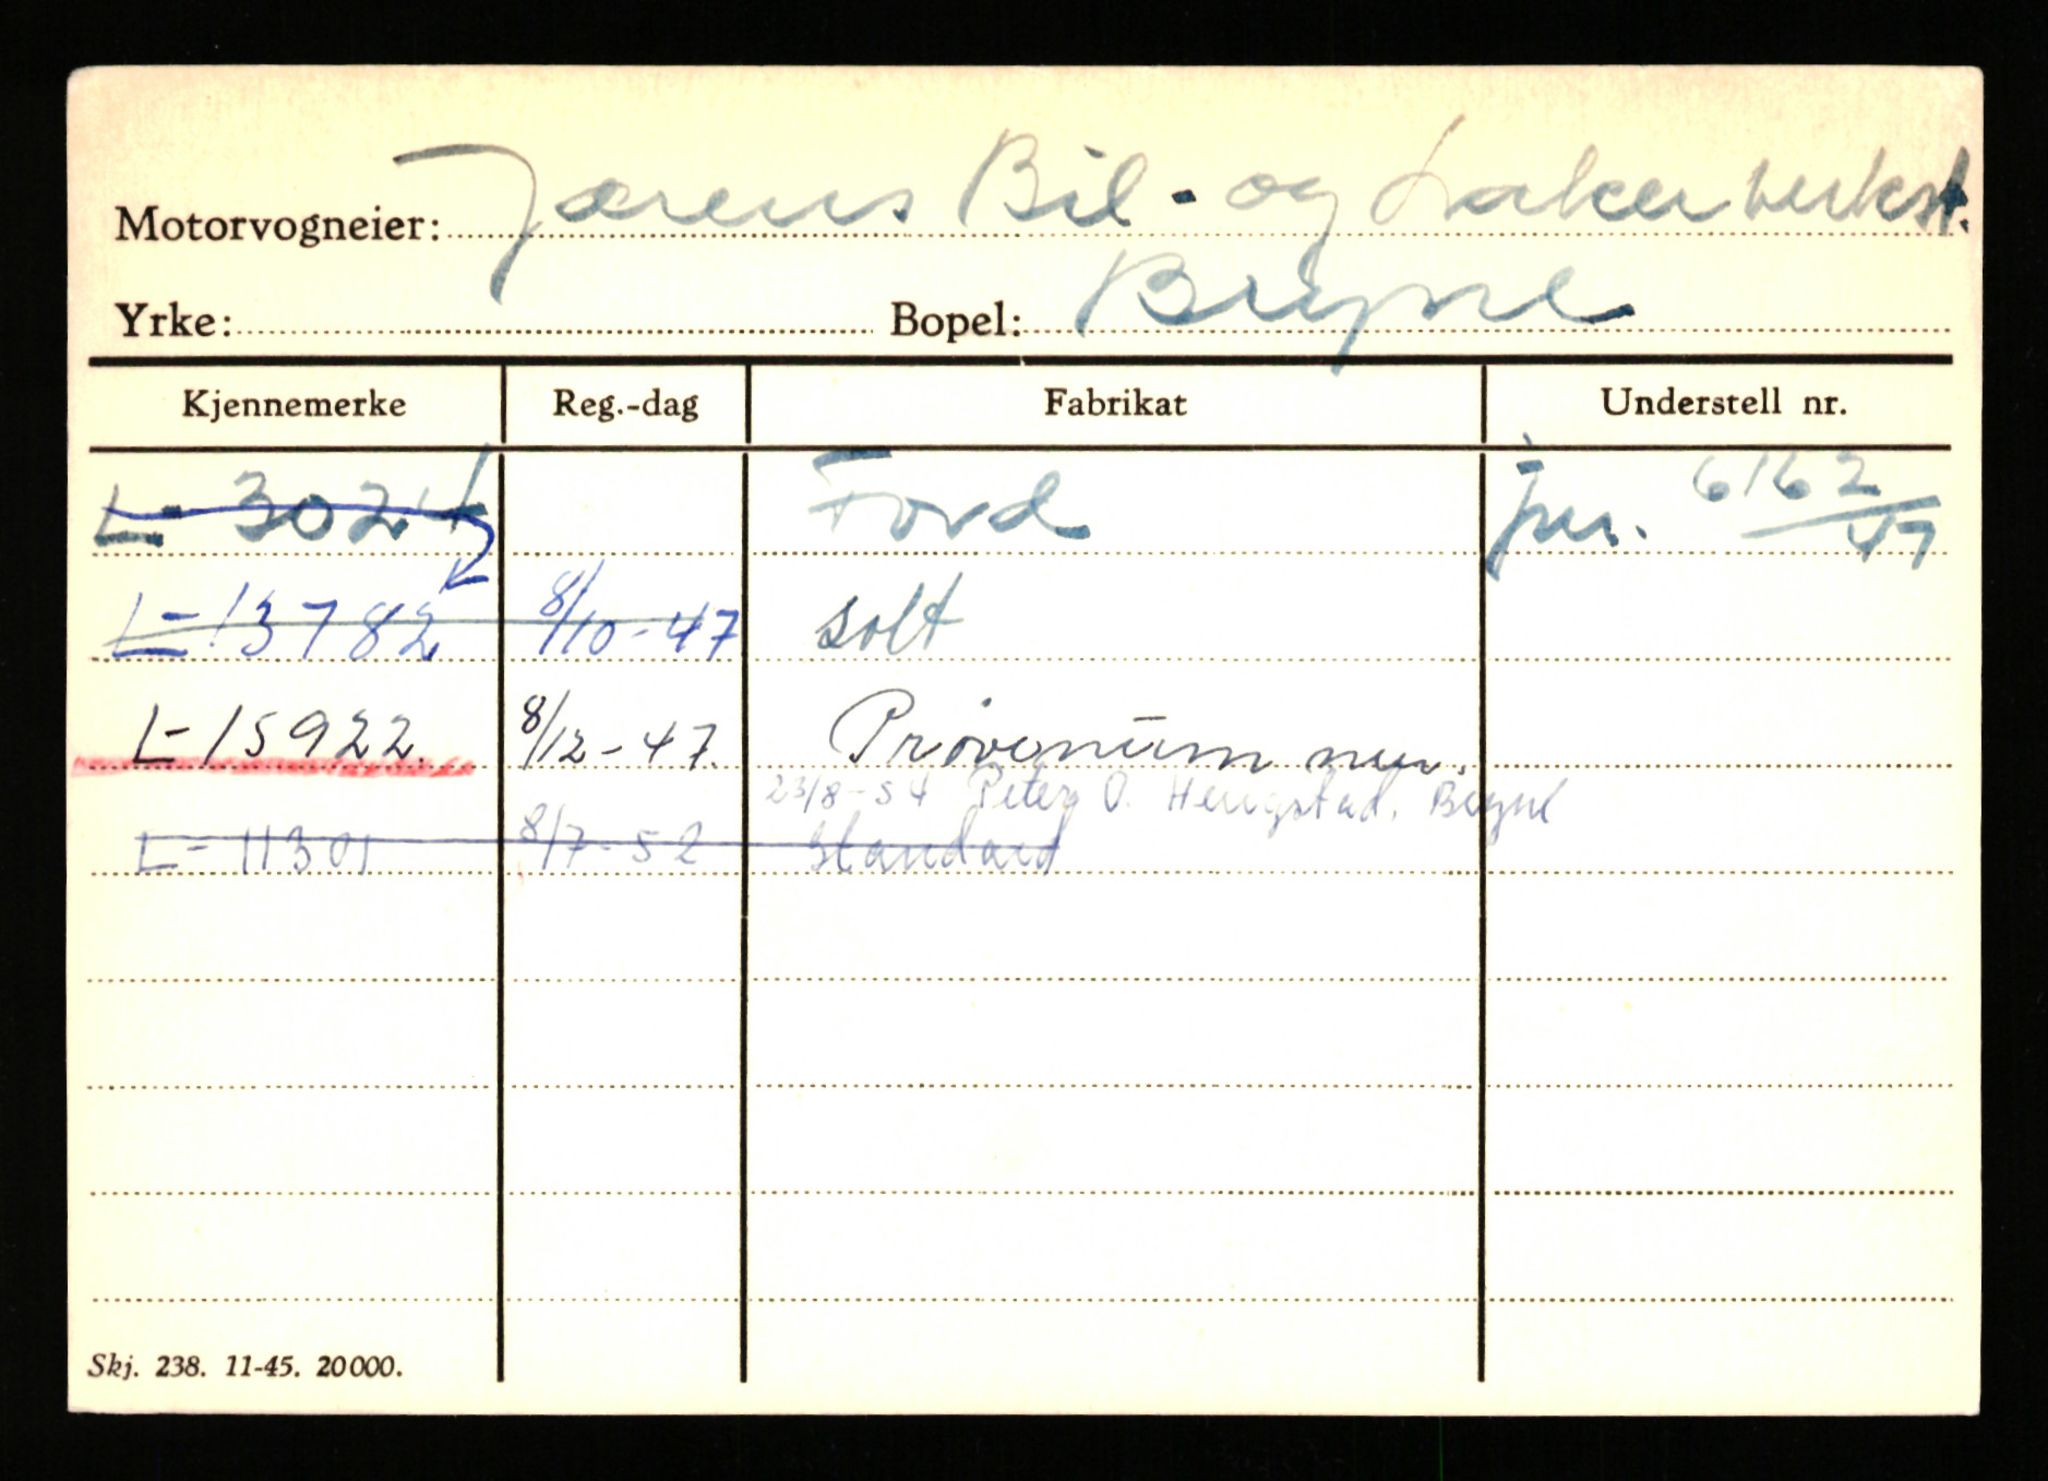 Motorvogneier: Jærens Bil - og Laker verkst.
Yrke: Bopel: Bryne
Kjennemerke Reg.-dag Fabrikat Understell nr.
L- 3024 Ford jnr. 6162/47
L- 13782 8/10-47 solt
L- 15922. 8/12-47. Prøvenummer.
23/8-54 Peter O. Hengstad. Bryne
L- 11301 8/7-52 Standard
Skj. 238. 11-45. 20000.